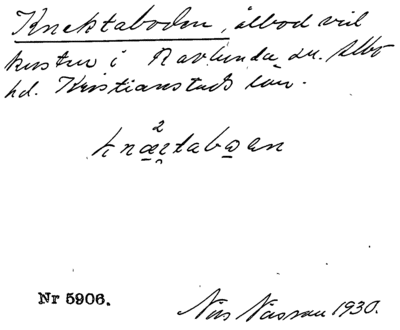 Knektaboden, ålbod vid
kusten i Ravlunda sn. Albo
hd. Kristianstads län.
2
Nr 5906.
Nils Nilsson 1930.